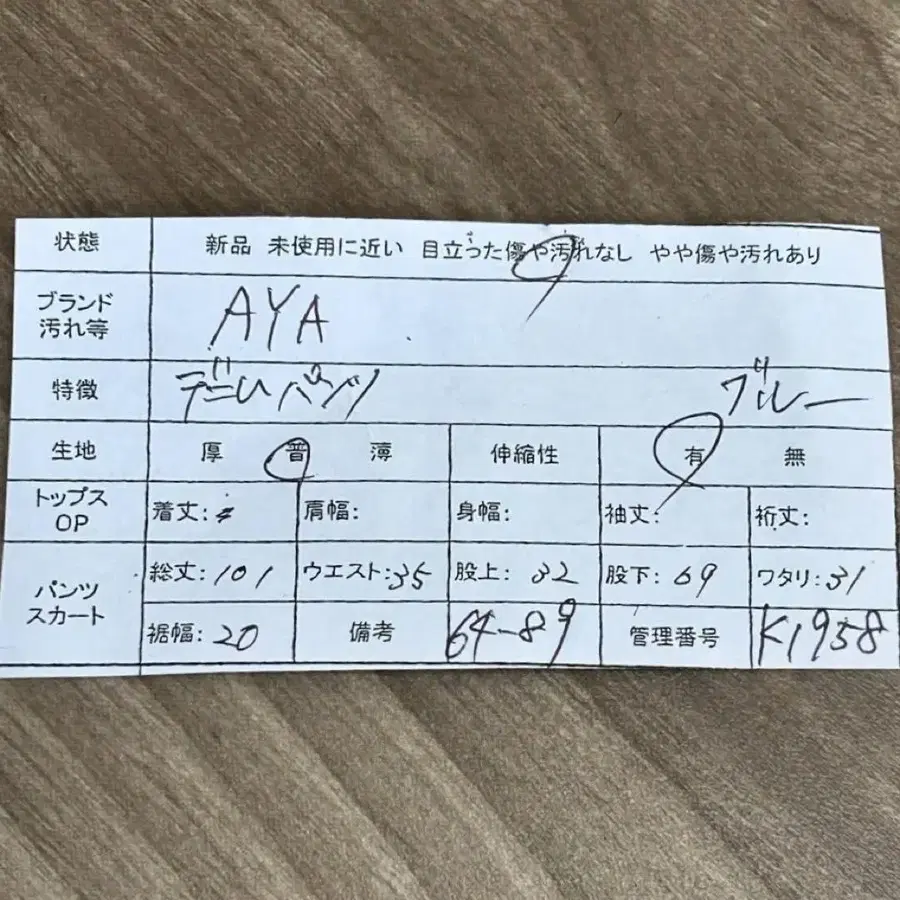 状態 新品 未使用に近い 目立った傷や汚れなし やや傷や汚れあり
ブランド
汚れ等 AYA
特徴 デニムパンツ ブルー
生地 厚 普 薄 伸縮性 有 無
トップス
OP 着丈: 肩幅: 身幅: 袖丈: 裄丈:
パンツ
スカート 総丈:101 ウエスト:35 股上:32 股下:69 ワタリ:31
裾幅:20 備考 64-89 管理番号 K1958